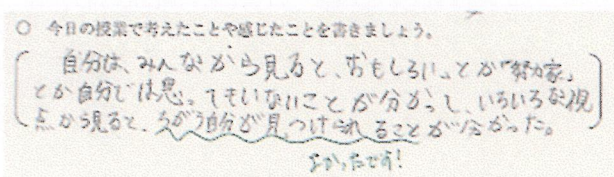 ○ 今日の授業で考えたことや感じたことを書きましょう。
自分は、みんなから見ると、おもしろい。とか「努力家」
とか自分では思ってもいないことが分かって、いろいろな視
点から見ると、ちがう自分が見つけられることが分かった。
よかったです!